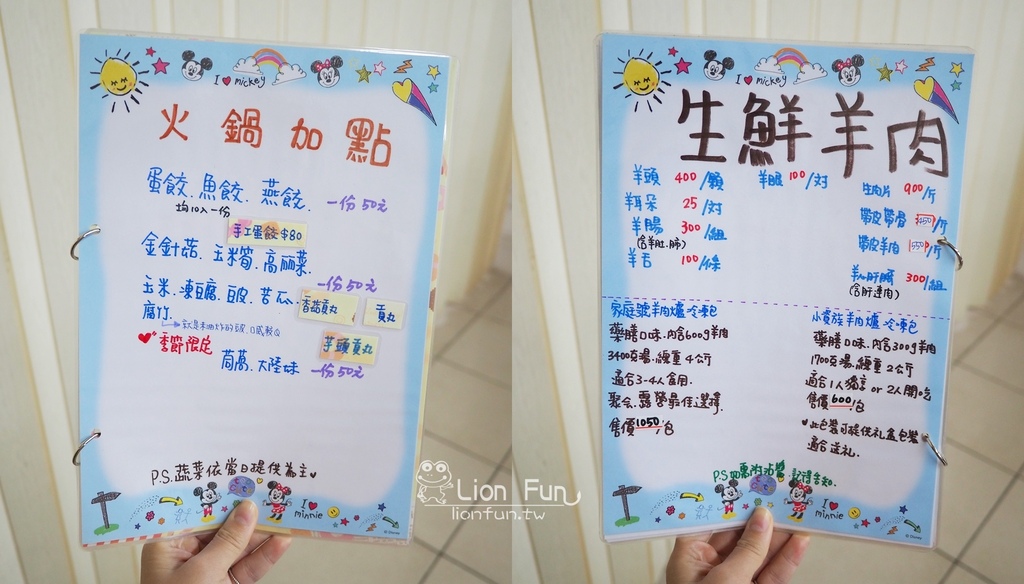 I ♥ mickey
火鍋加點
蛋餃.魚餃.燕餃. 一份50元
均10入一份
手工蛋餃$80
金針菇.玉米筍.高麗菜.
一份50元
玉米.凍豆腐.豆皮.苦瓜.
香菇貢丸 貢丸
腐竹.
季節限定
芋頭貢丸
茼蒿.大陸妹 一份50元
P.S.蔬菜依當日提供為主♥
I ♥ minnie
© Disney
I ♥ mickey
生鮮羊肉
羊頭 400/顆
羊耳朵 25/對
羊腸 300/組
(含羊肚.肺)
羊舌 100/條
羊眼 100/対
生肉片 900/斤
帶皮帶骨 /斤
帶皮羊肉 /斤
羊心肝腰 300/組
(含肝連肉)
家庭號羊肉爐冷凍包
藥膳口味.內含600g羊肉
3400克湯.總重4公斤
適合3-4人食用.
聚會.露營最佳選擇.
售價1050/包
小貴族羊肉爐冷凍包
藥膳口味.內含300g羊肉
1700克湯.總重2公斤
適合1人獨享or 2人開吃
售價600/包
♥此包裝可提供礼盒包裝
適合送礼.
I ♥ minnie
© Disney
Lion Fun
lionfun.tw